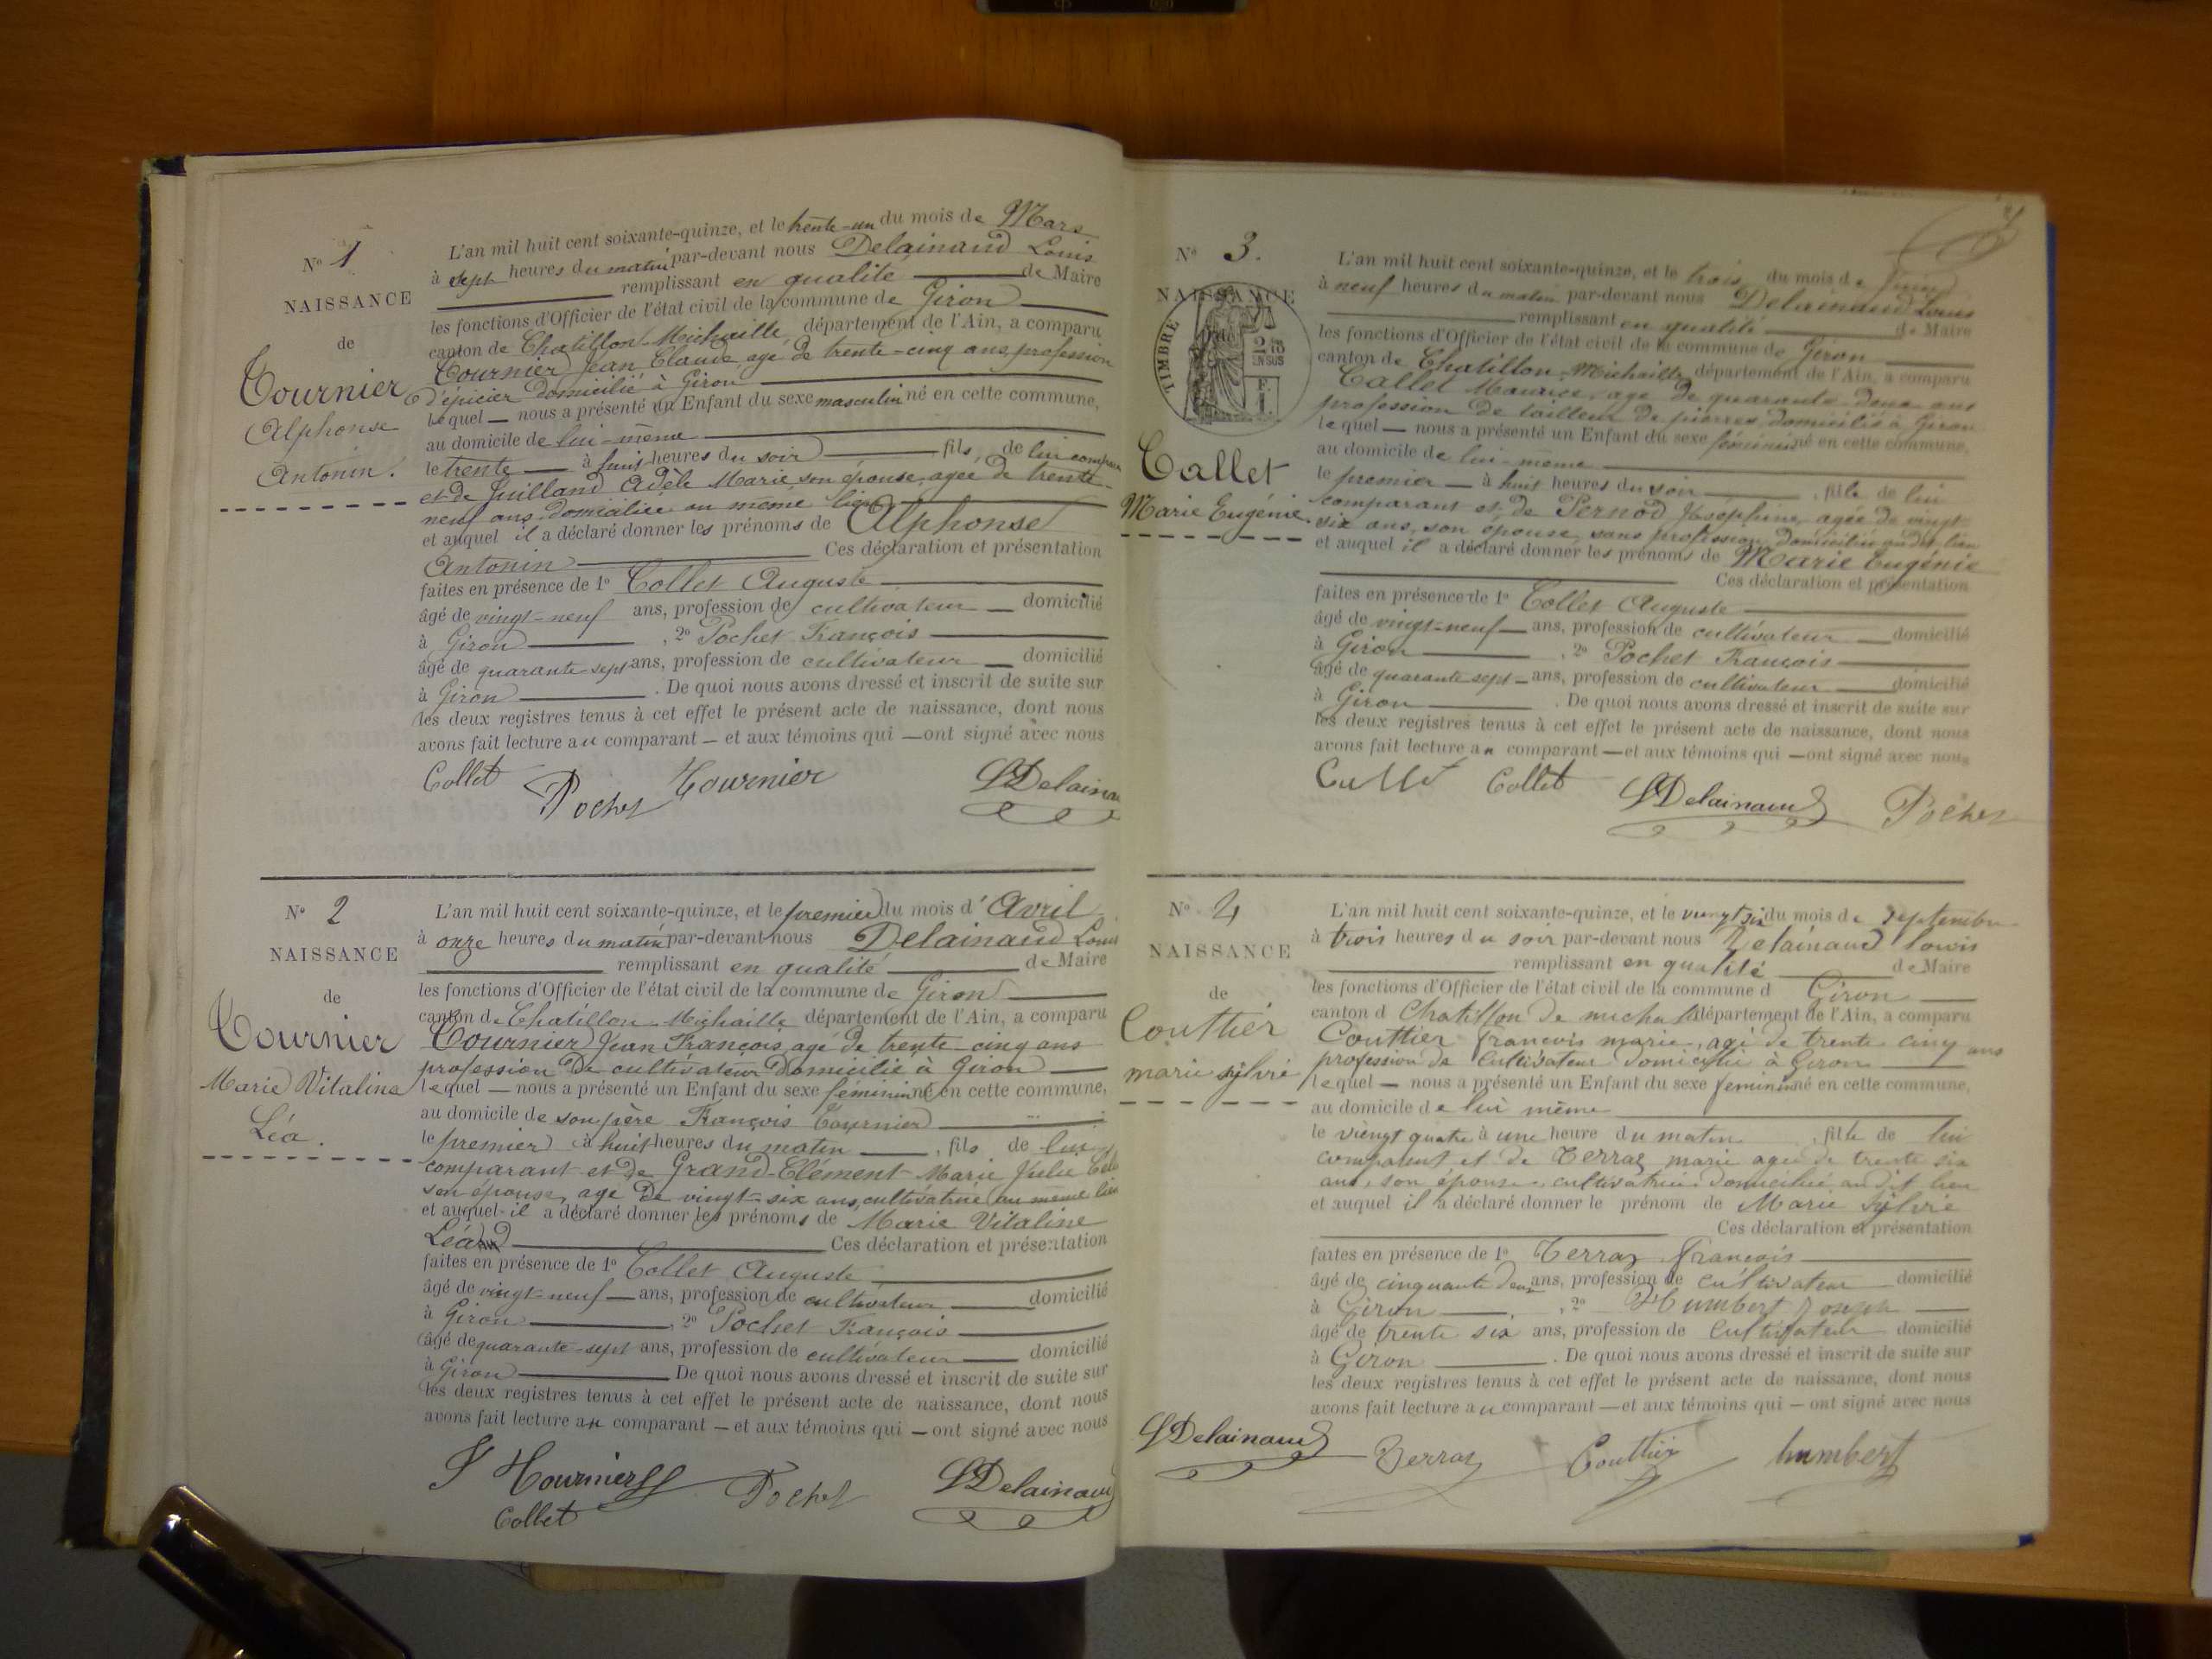 N° 1
NAISSANCE
de
Tournier
Alphonse
Antonin.
L'an mil huit cent soixante-quinze, et le trente-un du mois de Mars
à sept heures du matin par-devant nous Delainaud Louis
remplissant en qualité de Maire
les fonctions d'Officier de l'état civil de la commune de Giron
canton de Chatillon-Michaille, département de l'Ain, a comparu
Tournier Jean Claude agé de trente-cinq ans, profession
d'épicier domicilié à Giron
lequel — nous a présenté un Enfant du sexe masculin né en cette commune,
au domicile de lui-même
le trente — à huit heures du soir fils, de lui comparant
et de Juilland Adèle Marie son épouse, agée de trente-
neuf ans domiciliée au même lieu
et auquel il a déclaré donner les prénoms de Alphonse
Antonin Ces déclaration et présentation
faites en présence de 1° Collet Auguste
âgé de vingt-neuf ans, profession de cultivateur — domicilié
à Giron , 2° Pochet François
âgé de quarante-sept ans, profession de cultivateur — domicilié
à Giron . De quoi nous avons dressé et inscrit de suite sur
les deux registres tenus à cet effet le présent acte de naissance, dont nous
avons fait lecture au comparant — et aux témoins qui — ont signé avec nous
Collet Pochet Tournier LDelaina
N° 2
NAISSANCE
de
Tournier
Marie Vitaline
Léa.
L'an mil huit cent soixante-quinze, et le premier du mois d'Avril
à onze heures du matin par-devant nous Delainaud Louis
remplissant en qualité de Maire
les fonctions d'Officier de l'état civil de la commune de Giron
canton de Chatillon-Michaille département de l'Ain, a comparu
Tournier Jean François agé de trente cinq ans
profession de cultivateur domicilié à Giron
lequel — nous a présenté un Enfant du sexe féminin né en cette commune,
au domicile de son père François Tournier
le premier à huit heures du matin , fils de lui
comparant et de Grand-Clément Marie Julie
son épouse, agé de vingt-six ans, cultivatrice au même lieu
et auquel il a déclaré donner les prénoms de Marie Vitaline
Léa Ces déclaration et présentation
faites en présence de 1° Collet Auguste
âgé de vingt-neuf — ans, profession de cultivateur domicilié
à Giron , 2° Pochet François
âgé de quarante-sept ans, profession de cultivateur domicilié
à Giron De quoi nous avons dressé et inscrit de suite sur
les deux registres tenus à cet effet le présent acte de naissance, dont nous
avons fait lecture au comparant — et aux témoins qui — ont signé avec nous
Tournier Pochet LDelainaud
Collet
N° 3.
NAISSANCE
de
TIMBRE
EN SUS
Callet
Marie Eugénie.
L'an mil huit cent soixante-quinze, et le trois du mois de
à neuf heures du matin par-devant nous Delainaud Louis
remplissant en qualité de Maire
les fonctions d'Officier de l'état civil de la commune de Giron
canton de Chatillon-Michaille, département de l'Ain, a comparu
Callet Maurice, agé de quarante-deux ans
profession de tailleur de pierres, domicilié à Giron
lequel — nous a présenté un Enfant du sexe féminin né en cette commune,
au domicile de lui-même
le premier — à huit heures du soir , fille de lui
comparant et de Pernod Joséphine, agée de vingt-
six ans, son épouse, sans profession, domiciliée au dit lieu
et auquel il a déclaré donner les prénoms de Marie Eugénie
Ces déclaration et présentation
faites en présence de 1° Collet Auguste
âgé de vingt-neuf — ans, profession de cultivateur — domicilié
à Giron , 2° Pochet François
âgé de quarante sept — ans, profession de cultivateur domicilié
à Giron . De quoi nous avons dressé et inscrit de suite sur
les deux registres tenus à cet effet le présent acte de naissance, dont nous
avons fait lecture au comparant — et aux témoins qui — ont signé avec nous
Callet Collet LDelainaud Pochet
N° 4
NAISSANCE
de
Couttier
marie sylvie
L'an mil huit cent soixante-quinze, et le vingt six du mois de septembre
à trois heures du soir par-devant nous Delainaud louis
remplissant en qualité de Maire
les fonctions d'Officier de l'état civil de la commune d Giron
canton d Chatillon de michaille département de l'Ain, a comparu
Couttier françois marie, agé de trente cinq ans
profession de cultivateur domicilié à Giron
lequel — nous a présenté un Enfant du sexe feminin né en cette commune,
au domicile de lui même
le viengt quatre à une heure du matin , fille de lui
comparant et de Terraz marie agée de trente six
ans, son épouse, cultivatrice domiciliée au dit lieu
et auquel il a déclaré donner le prénom de Marie Sylvie
Ces déclaration et présentation
faites en présence de 1° Terraz françois
âgé de cinquante deux ans, profession de cultivateur domicilié
à Giron , 2° Humbert Joseph
âgé de trente six ans, profession de cultivateur domicilié
à Giron . De quoi nous avons dressé et inscrit de suite sur
les deux registres tenus à cet effet le présent acte de naissance, dont nous
avons fait lecture au comparant — et aux témoins qui — ont signé avec nous
LDelainaud Terraz Couttier humbert